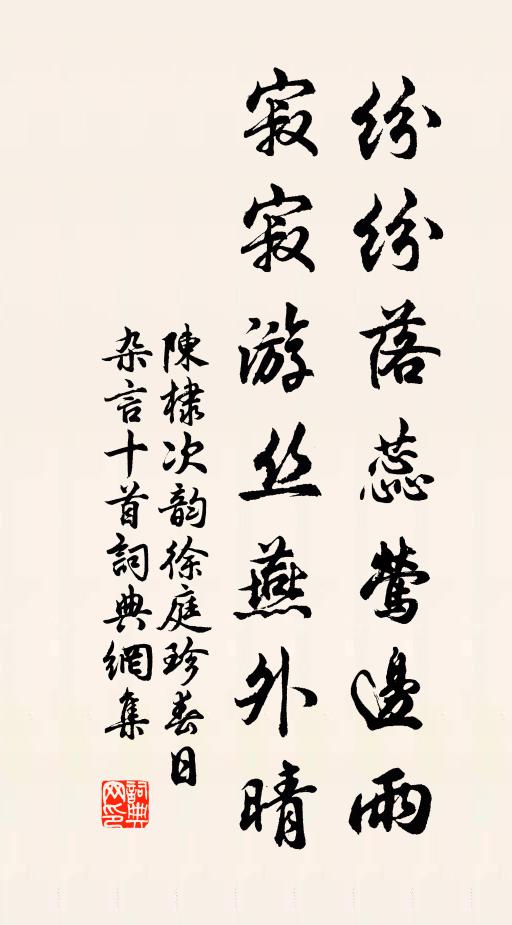 纷纷落蕊莺邊雨
寂寂游丝燕外晴
陳棣次韵徐庭珍春日
杂言十首詞典網集
詞典网印